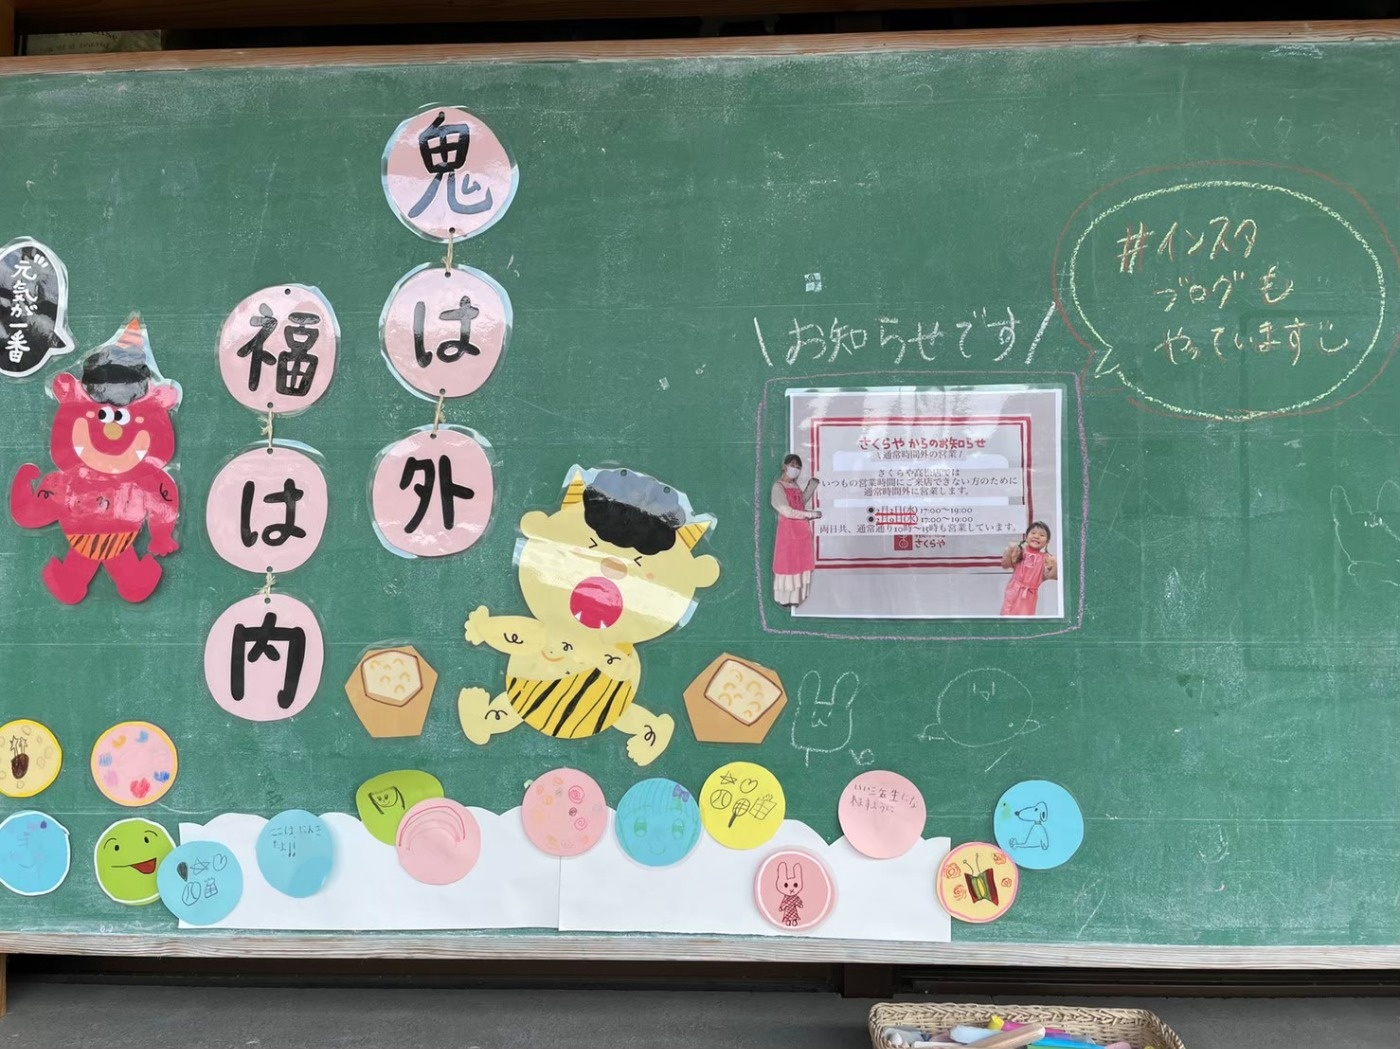 鬼は外
福は内
元気が一番
\お知らせです/
#インスタ
ブログも
やっています
さくらや からのお知らせ
\通常時間外の営業/
さくらや高松店では
いつもの営業時間にご来店できない方のために
通常時間外に営業します。
(水) 17:00〜19:00
(水) 17:00〜19:00
両日共、通常通り10時〜15時も営業しています。
さくらや